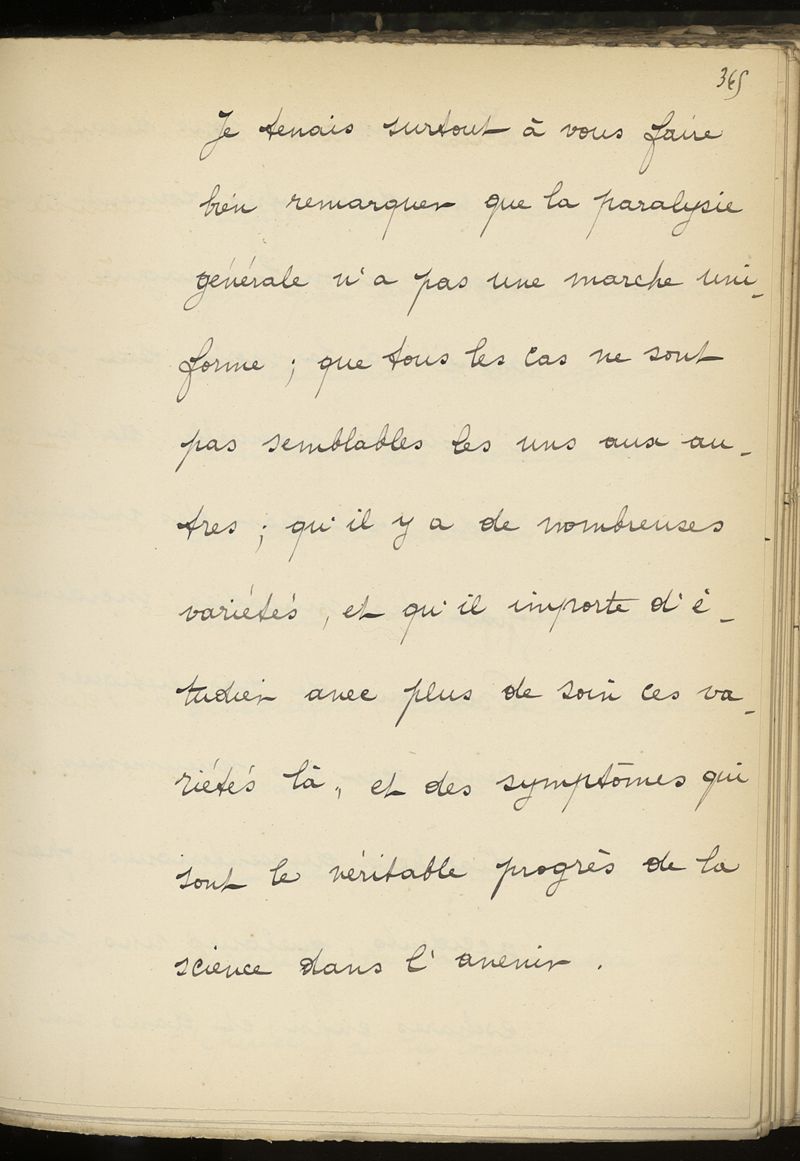 365
Je tenais surtout à vous faire
bien remarquer que la paralysie
générale n'a pas une marche uni-
forme ; que tous les cas ne sont
pas semblables les uns aux au-
tres ; qu'il y a de nombreuses
variétés, et qu'il importe d'é-
tudier avec plus de soin ces va-
riétés là, et des symptômes qui
sont le véritable progrès de la
science dans l'avenir.